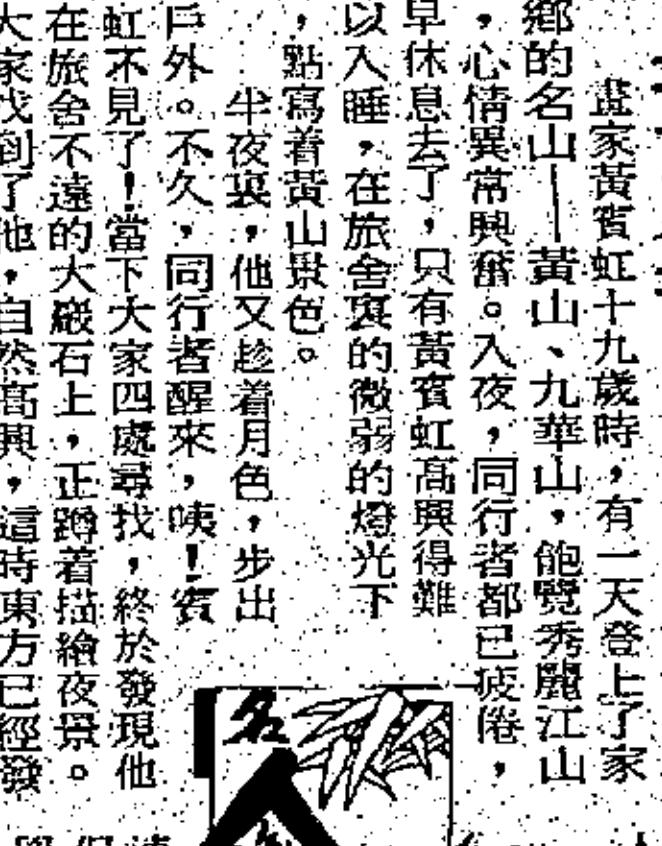 畫家黃賓虹十九歲時，有一天登上了家
鄉的名山——黃山、九華山，飽覽秀麗江山
，心情異常興奮。入夜，同行者都已疲倦，
早休息去了，只有黃賓虹高興得難
以入睡，在旅舍裏的微弱的燈光下
，點寫着黃山景色。
半夜裏，他又趁着月色，步出
戶外。不久，同行者醒來，咦！賓
虹不見了！當下大家四處尋找，終於發現他
在旅舍不遠的大巖石上，正蹲着描繪夜景。
大家找到了他，自然高興，這時東方已經發
名